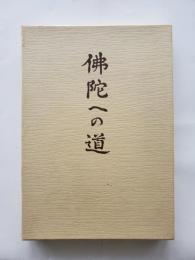 佛陀への道